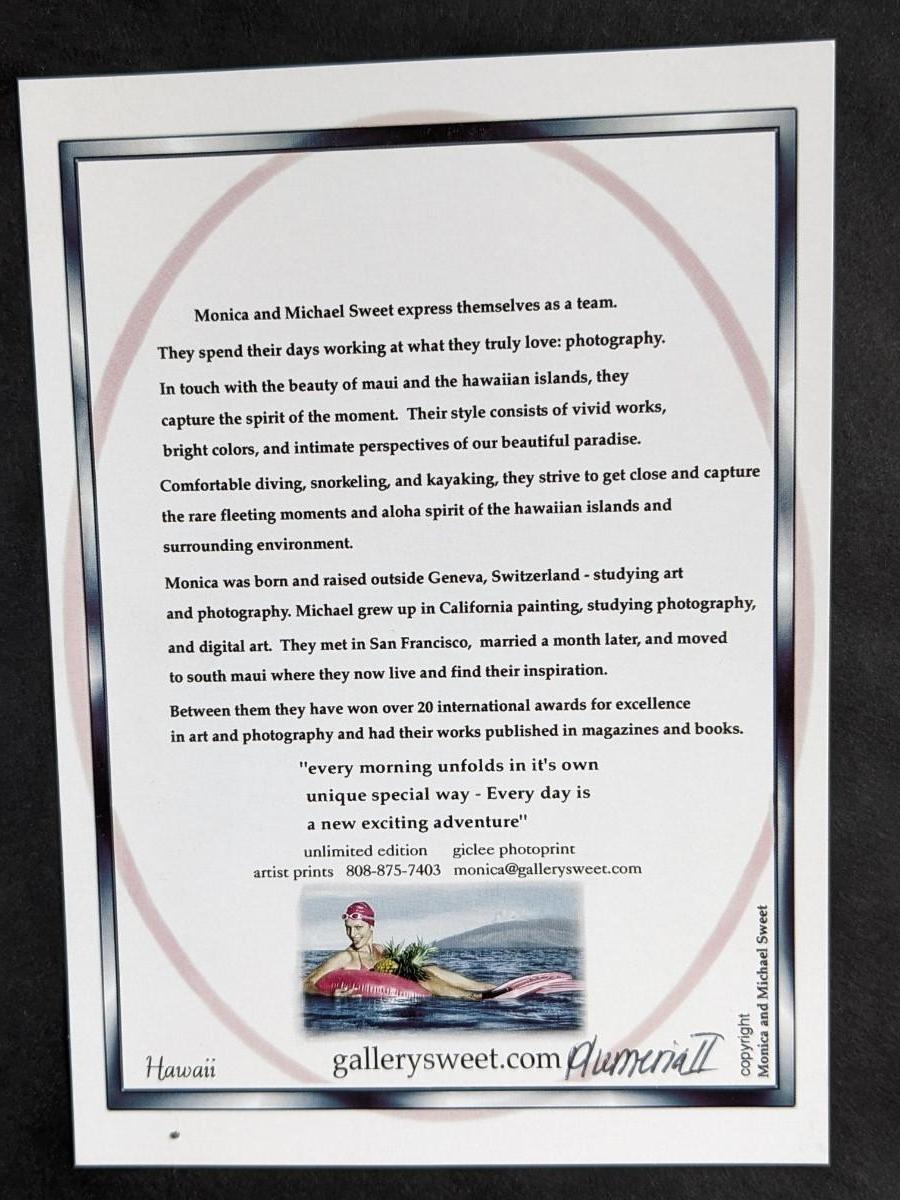 Monica and Michael Sweet express themselves as a team.
They spend their days working at what they truly love: photography.
In touch with the beauty of maui and the hawaiian islands, they
capture the spirit of the moment. Their style consists of vivid works,
bright colors, and intimate perspectives of our beautiful paradise.
Comfortable diving, snorkeling, and kayaking, they strive to get close and capture
the rare fleeting moments and aloha spirit of the hawaiian islands and
surrounding environment.
Monica was born and raised outside Geneva, Switzerland - studying art
and photography. Michael grew up in California painting, studying photography,
and digital art. They met in San Francisco, married a month later, and moved
to south maui where they now live and find their inspiration.
Between them they have won over 20 international awards for excellence
in art and photography and had their works published in magazines and books.
"every morning unfolds in it's own
unique special way - Every day is
a new exciting adventure"
unlimited edition giclee photoprint
artist prints 808-875-7403 monica@gallerysweet.com
Hawaii
gallerysweet.com
Plumeria II
copyright
Monica and Michael Sweet